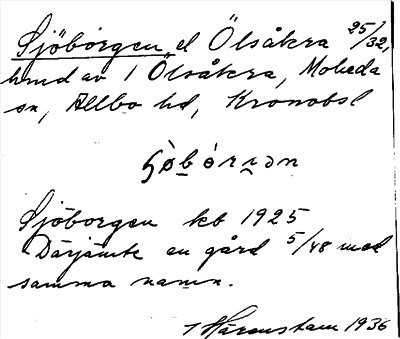 Sjöborgen, el Ölsåkra 25/32,
hmd av 1 Ölsåkra, Moheda
sn, Allbo hd, Kronobsl
Sjöborgen kb 1925
Därjämte en gård 5/48 med
samma namn.
Härenstam 1936